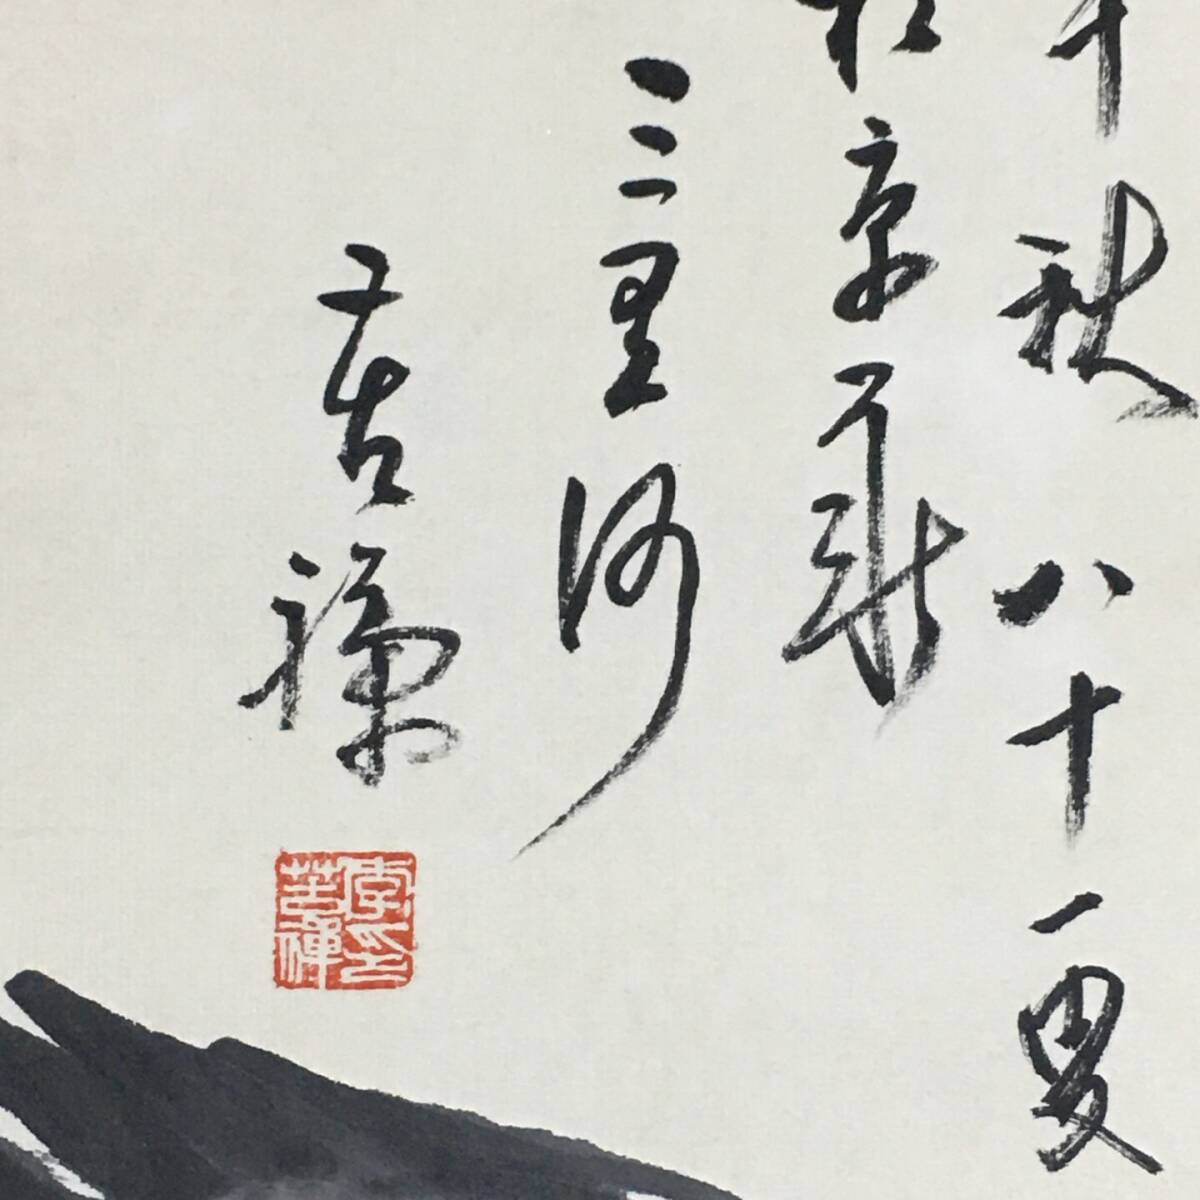 年秋八十一叟
於京華
三里河
苦禅
李印苦禅